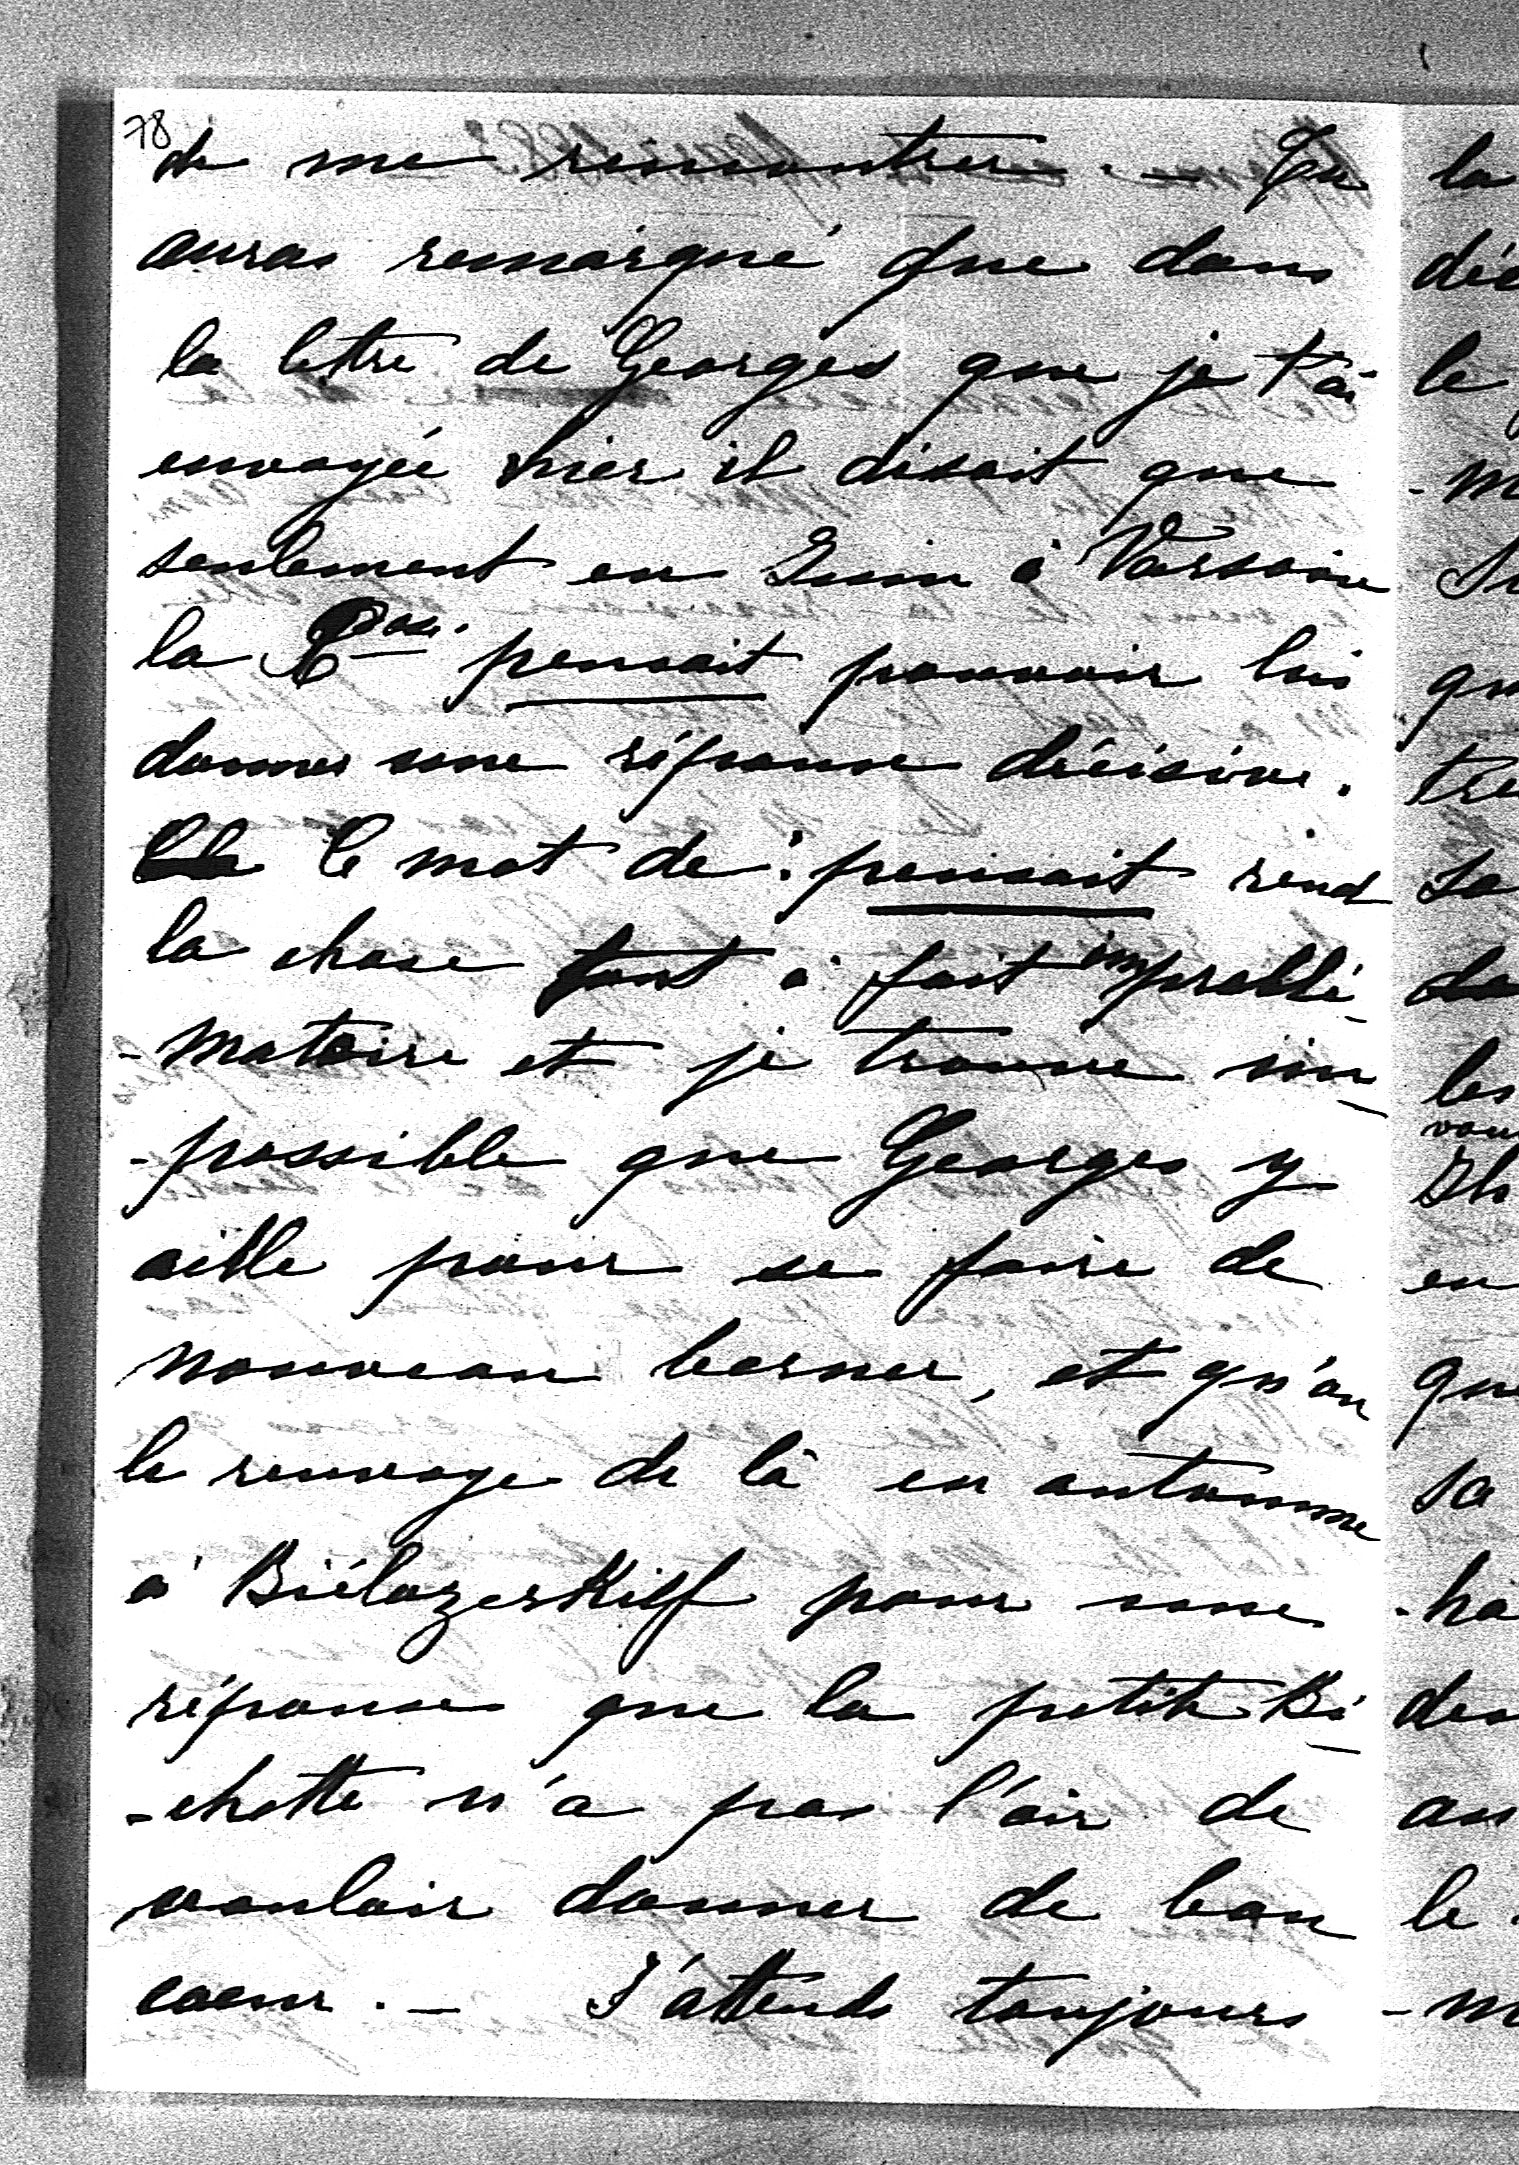 78
de me remontrer. — Tu
auras remarqué que dans
la lettre de Georges que je t'ai
envoyée hier il disait que
seulement en Juin à Varsovie
la pensait pouvoir lui
donner une réponse décisive.
Ce mot de: pensait rend
la chose tout à fait improblé-
-matoire et je trouve im-
-possible que Georges y
aille pour se faire de
nouveau berner, et qu'on
le renvoye de là en automne
à Biélozerskilf pour une
réponse que la petite Bi-
-chette n'a pas l'air de
vouloir donner de bon
coeur. — J'attends toujours